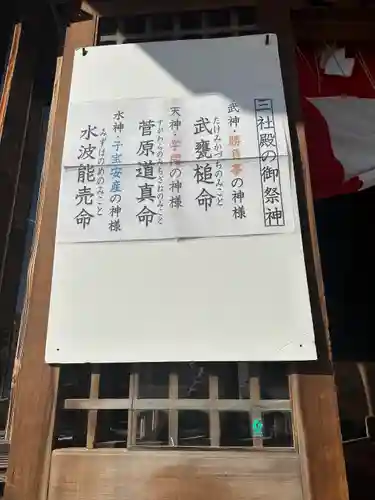 三社殿の御祭神
武神・勝負事の神様
たけみかづちのみこと
武甕槌命
天神・学問の神様
すがわらのみちざねのみこと
菅原道真命
水神・子宝安産の神様
みずはのめのみこと
水波能売命